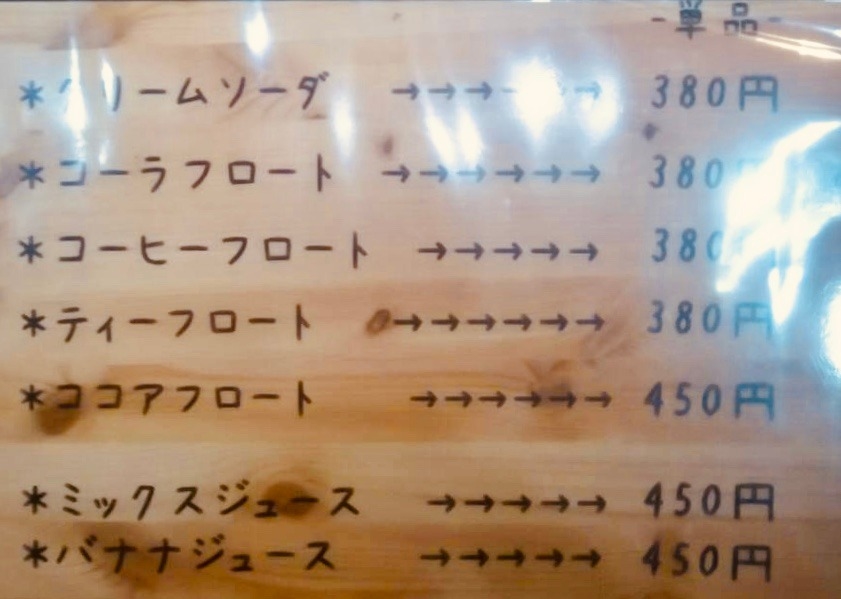 -単品-
*クリームソーダ →→→→→→ 380円
*コーラフロート →→→→→→ 380円
*コーヒーフロート →→→→→ 380
*ティーフロート →→→→→→ 380円
*ココアフロート →→→→→→ 450円
*ミックスジュース →→→→→ 450円
*バナナジュース →→→→→ 450円